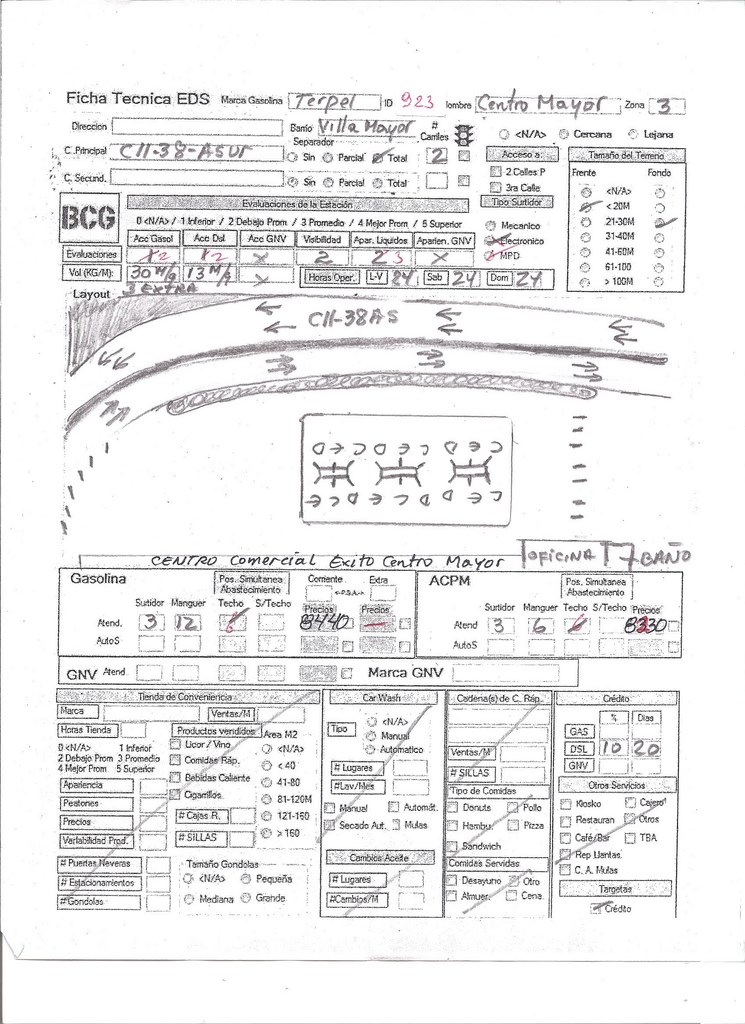 Ficha Tecnica EDS Marca Gasolina Terpel ID 923 Nombre Centro Mayor Zona 3
Direccion Barrio Villa Mayor # Carriles <N/A> Cercana Lejana
C. Principal Cll-38-ASur Separador Sin Parcial Total 2 Acceso a: Tamaño del Terreno
C. Secund. Sin Parcial Total 2 Calles P Frente Fondo
3ra Calle <N/A>
BCG Evaluaciones de la Estación Tipo Surtidor < 20M
0 <N/A> / 1 Inferior / 2 Debajo Prom / 3 Promedio / 4 Mejor Prom / 5 Superior Mecanico 21-30M
Acc Gasol Acc Dsl Acc GNV Visibilidad Apar. Liquidos Aparien. GNV Electronico 31-40M
Evaluaciones X2 X2 X 2 23 X MPD 41-60M
Vol (KG/M): X Horas Oper. L-V 24 Sab 24 Dom 24 61-100
3 EXTRA > 100M
Layout
Cll-38AS
C E D C E D C E D C E D
C E D C E D C E D C E D
CENTRO Comercial Exito Centro Mayor OFICINA BAÑO
Gasolina Pos. Simultanea Abastecimiento Corriente Extra ACPM Pos. Simultanea Abastecimiento
Surtidor Manguer Techo S/Techo Precios Precios Surtidor Manguer Techo S/Techo Precios
Atend. 3 12 6 8440 — Atend. 3 6 6 8330
AutoS AutoS
GNV Atend. Marca GNV
Tienda de Conveniencia Car Wash Cadena(s) de C. Ráp. Crédito
Marca Ventas/M <N/A> % Dias
Horas Tienda Productos vendidos Area M2 Tipo Manual GAS
0 <N/A> 1 Inferior Licor / Vino <N/A> Automatico Ventas/M DSL 10 20
2 Debajo Prom 3 Promedio Comidas Ráp. < 40 # Lugares # SILLAS GNV
4 Mejor Prom 5 Superior Bebidas Caliente 41-80 # Lav/Mes Tipo de Comidas Otros Servicios
Apariencia Cigarrillos 81-120M Manual Automát. Donuts Pollo Kiosko Cajero
Peatones # Cajas R. 121-160 Secado Aut. Mulas Hambu. Pizza Restauran Otros
Precios # SILLAS > 160 Sandwich Café/Bar TBA
Variabilidad Prod. Cambios Aceite Comidas Servidas Rep Llantas.
# Puertas Neveras Tamaño Gondolas # Lugares Desayuno Otro C. A. Mulas
# Estacionamientos <N/A> Pequeña # Cambios/M Almuer. Cena Targetas
# Gondolas Mediana Grande Crédito